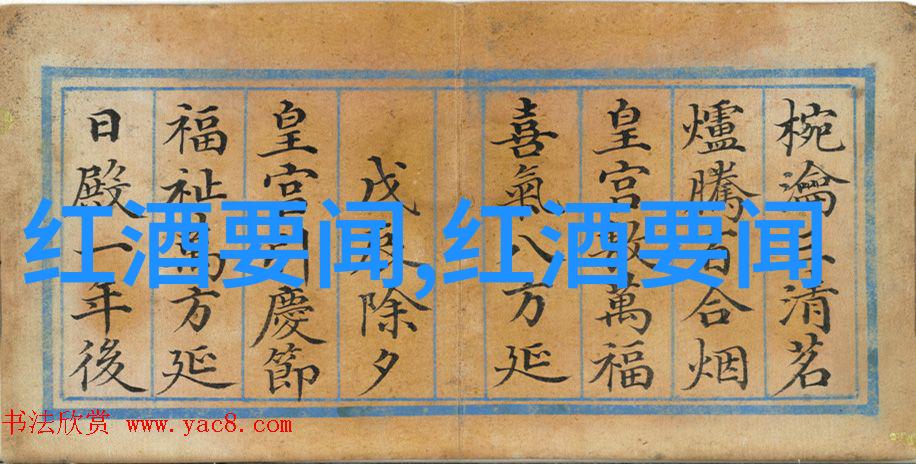 椀瀹三清茗
爐騰百合烟
皇宫敷萬福
喜氣八方延
戊辰除夕
皇宫慶節
福祉萬方延
日殿一年後
红酒要闻,红酒要闻
书法欣赏 www.yac8.com